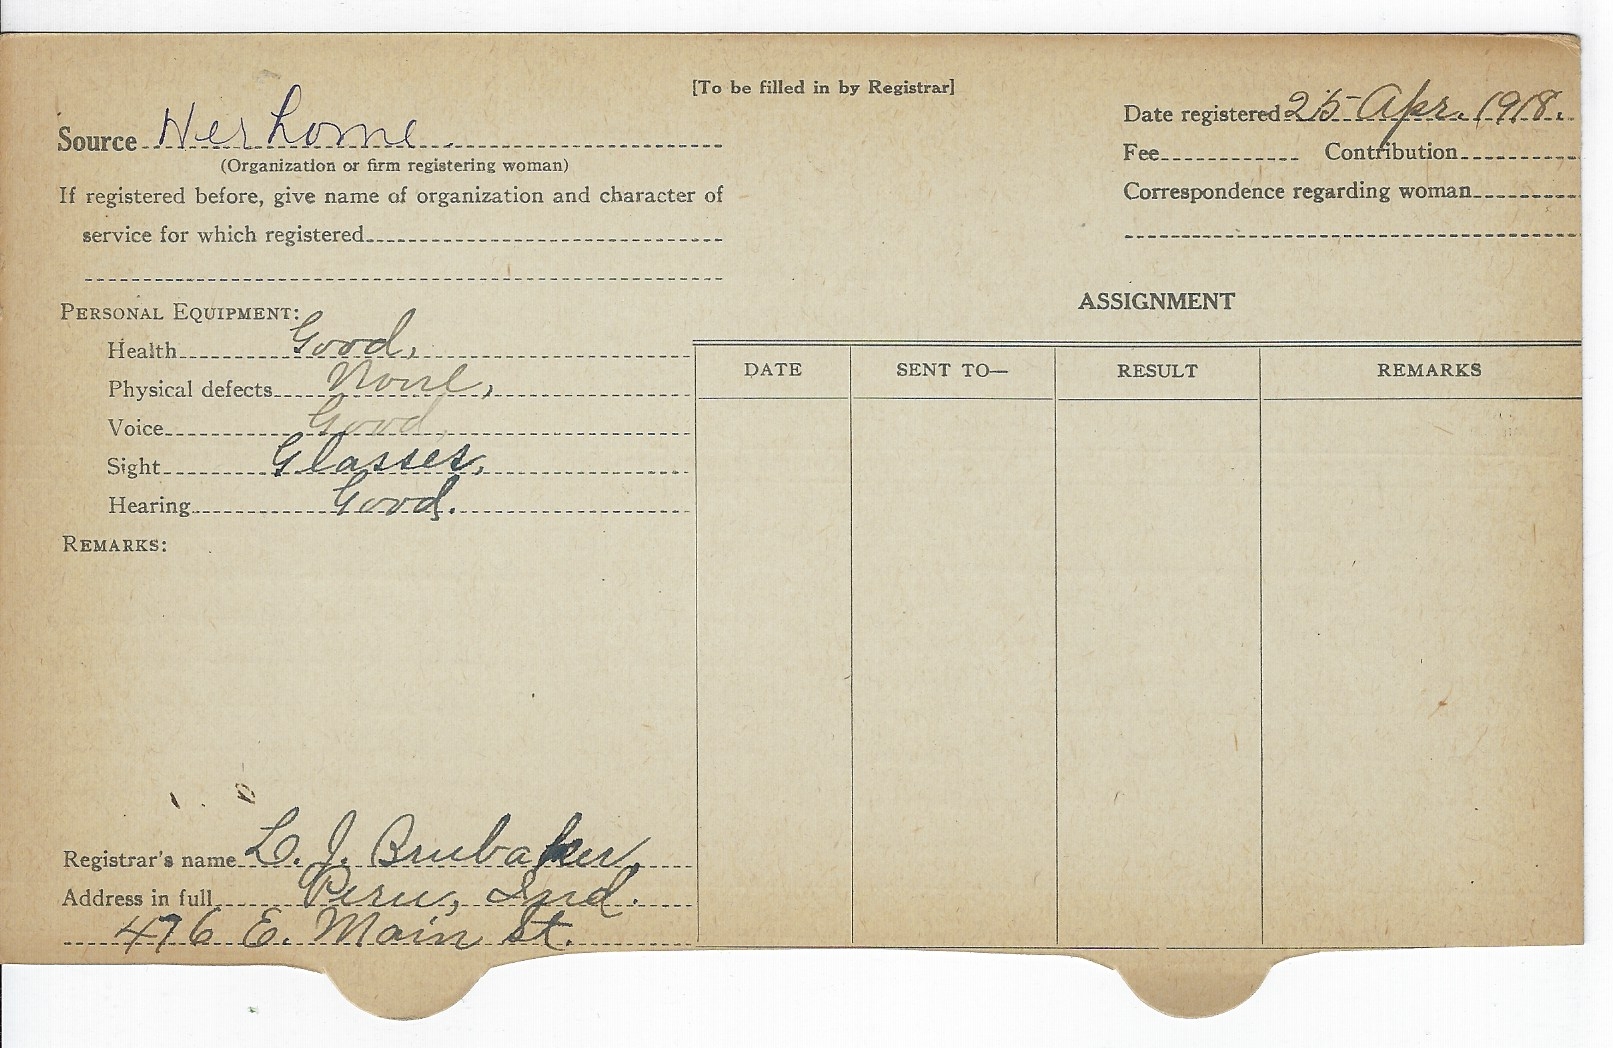 [To be filled in by Registrar]
Source Her home
(Organization or firm registering woman)
If registered before, give name of organization and character of
service for which registered
Date registered 25 Apr. 1918.
Fee Contribution
Correspondence regarding woman
PERSONAL EQUIPMENT:
Health Good,
Physical defects None,
Voice Good,
Sight Glasses,
Hearing Good.
REMARKS:
ASSIGNMENT
DATE SENT TO— RESULT REMARKS
Registrar's name L. J. Brubaker,
Address in full Peru, Ind.
476 E. Main St.